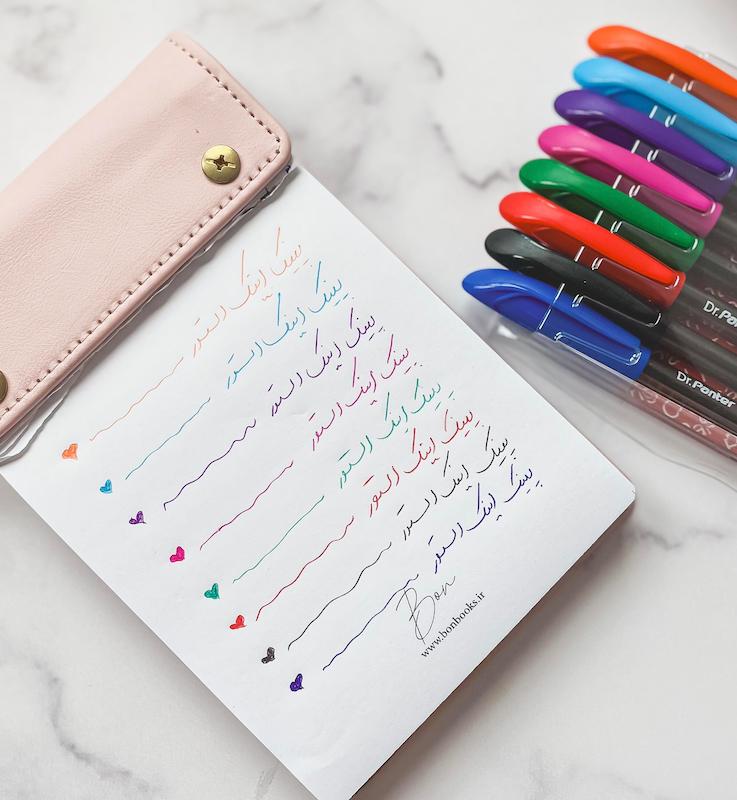 پینک اینک استور
پینک اینک استور
پینک اینک استور
پینک اینک استور
پینک اینک استور
پینک اینک استور
پینک اینک استور
پینک اینک استور
Bon
www.bonbooks.ir
Dr.Panter